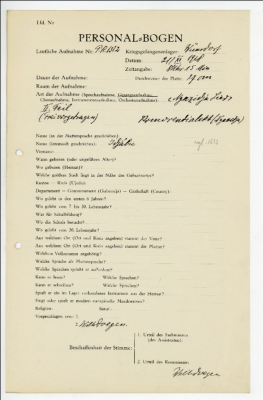 Lfd. Nr
PERSONAL-BOGEN
Lautliche Aufnahme Nr. PK 812 Kriegsgefangenenlager: Wünsdorf
Datum:
Zeitangabe:
Dauer der Aufnahme: Durchmesser der Platte: 27 cm
Raum der Aufnahme:
Art der Aufnahme (Sprechaufnahme, Gesangsaufnahme,
Choraufnahme, Instrumentenaufnahme, Orchesteraufnahme):
II. Teil
Name (in der Muttersprache geschrieben):
Name (lateinisch geschrieben):
Vorname:
Wann geboren (oder ungefähres Alter)?
Wo geboren (Heimat)?
Welche größere Stadt liegt in der Nähe des Geburtsortes?
Kanton – Kreis (Ujedz):
Departement – Gouvernement (Gubernija) – Grafschaft (County):
Wo gelebt in den ersten 6 Jahren?
Wo gelebt vom 7. bis 20. Lebensjahr?
Was für Schulbildung?
Wo die Schule besucht?
Wo gelebt vom 20. Lebensjahr?
Aus welchem Ort (Ort und Kreis angeben) stammt der Vater?
Aus welchem Ort (Ort und Kreis angeben) stammt die Mutter?
Welchem Volksstamm angehörig?
Welche Sprache als Muttersprache?
Welche Sprachen spricht er außerdem?
Kann er lesen? Welche Sprachen?
Kann er schreiben? Welche Sprachen?
Spielt er ein im Lager vorhandenes Instrument aus der Heimat?
Singt oder spielt er modern europäische Musikweisen?
Religion: Beruf:
Vorgeschlagen von: 1.
Beschaffenheit der Stimme:
1. Urteil des Fachmannes
(des Assistenten):
2. Urteil des Kommissars: